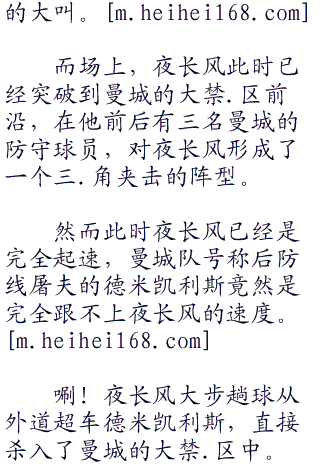 的大叫。[m.heihei168.com]
而场上，夜长风此时已
经突破到曼城的大禁.区前
沿，在他前后有三名曼城的
防守球员，对夜长风形成了
一个三.角夹击的阵型。
然而此时夜长风已经是
完全起速，曼城队号称后防
线屠夫的德米凯利斯竟然是
完全跟不上夜长风的速度。
[m.heihei168.com]
唰！夜长风大步趟球从
外道超车德米凯利斯，直接
杀入了曼城的大禁.区中。